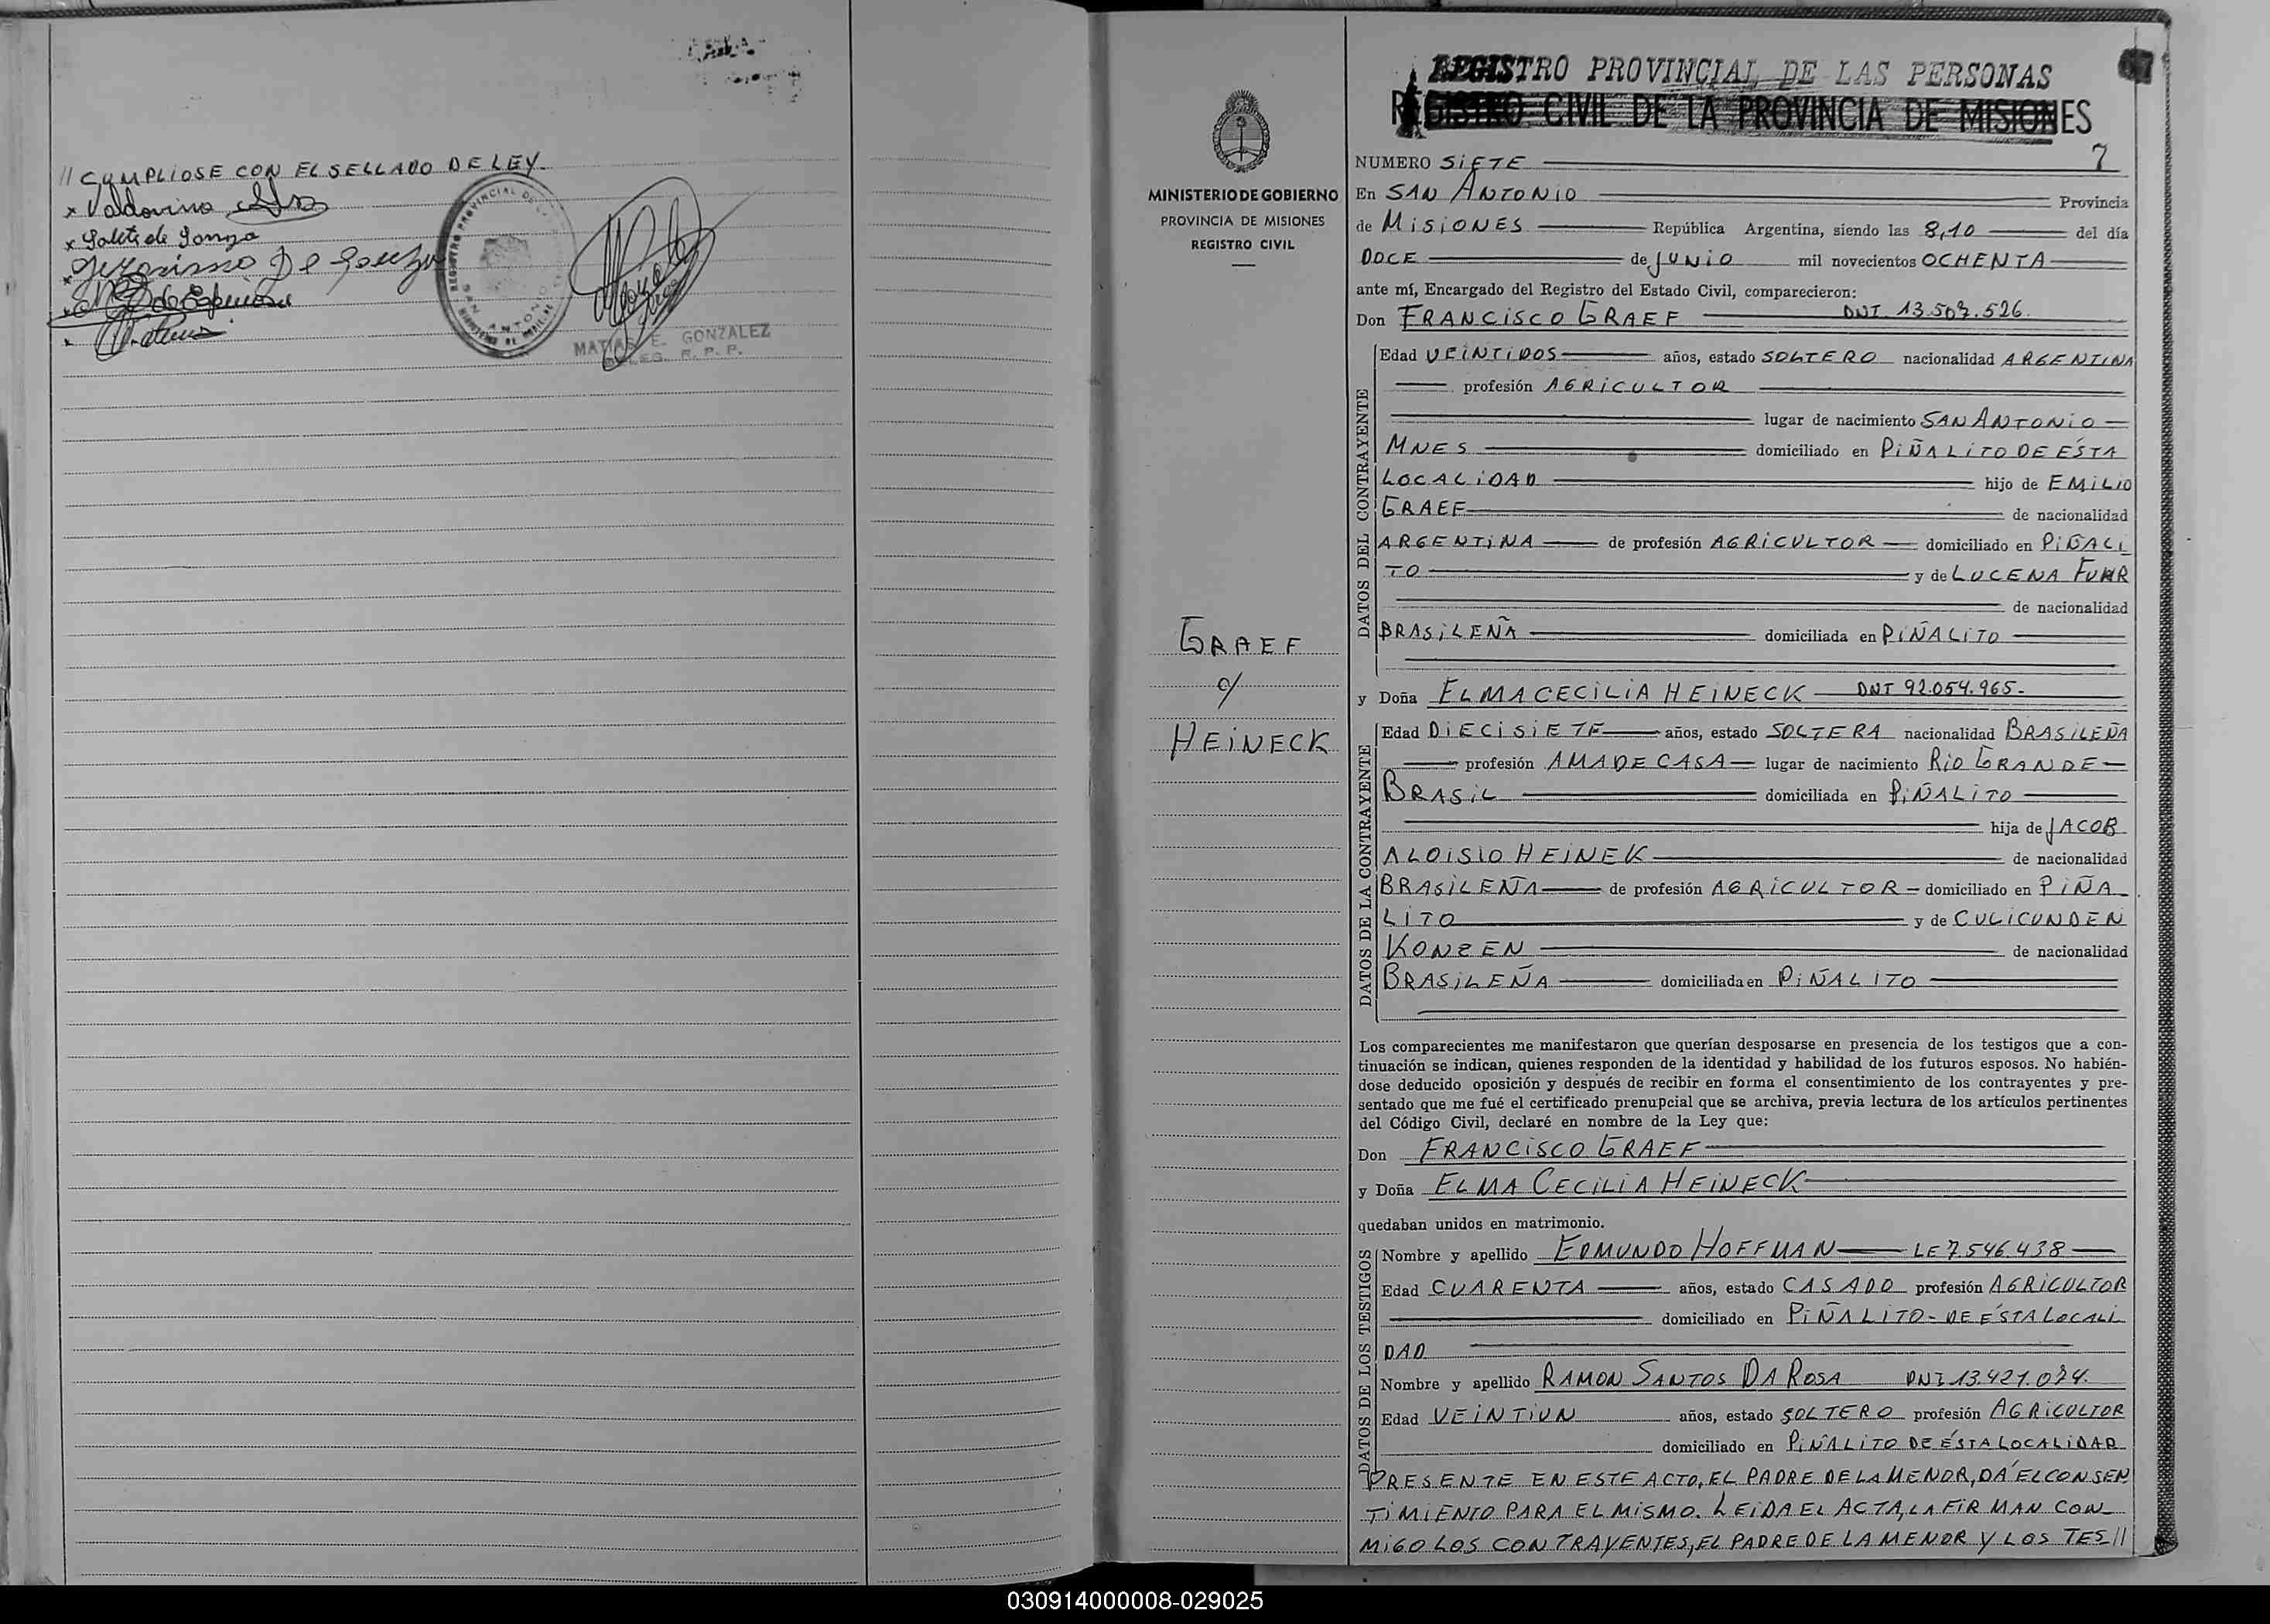 // CUMPLIOSE CON EL SELLADO DE LEY
x Valdovino
x Salete de Souza
x Jeronimo De Souza
REGISTRO PROVINCIAL DE
SAN ANTONIO
MATIAS E. GONZALEZ
DELEG. R. P. P.
MINISTERIO DE GOBIERNO
PROVINCIA DE MISIONES
REGISTRO CIVIL
GRAEF
c/
HEINECK
REGISTRO PROVINCIAL DE LAS PERSONAS
REGISTRO CIVIL DE LA PROVINCIA DE MISIONES
7
NUMERO SIETE
En SAN ANTONIO Provincia
de MISIONES República Argentina, siendo las 8,10 del día
DOCE de JUNIO mil novecientos OCHENTA
ante mí, Encargado del Registro del Estado Civil, comparecieron:
Don FRANCISCO GRAEF DNI 13.507.526.
DATOS DEL CONTRAYENTE
Edad VEINTIDOS años, estado SOLTERO nacionalidad ARGENTINA
profesión AGRICULTOR
lugar de nacimiento SAN ANTONIO
MNES domiciliado en PIÑALITO DE ÉSTA
LOCALIDAD hijo de EMILIO
GRAEF de nacionalidad
ARGENTINA de profesión AGRICULTOR domiciliado en PIÑALI
TO y de LUCENA FUHR
de nacionalidad
BRASILEÑA domiciliada en PIÑALITO
y Doña ELMA CECILIA HEINECK DNI 92.054.965-
DATOS DE LA CONTRAYENTE
Edad DIECISIETE años, estado SOLTERA nacionalidad BRASILEÑA
profesión AMA DE CASA lugar de nacimiento RIO GRANDE
BRASIL domiciliada en PIÑALITO
hija de JACOB
ALOISIO HEINEK de nacionalidad
BRASILEÑA de profesión AGRICULTOR domiciliado en PIÑA
LITO y de CULICUNDEN
KONZEN de nacionalidad
BRASILEÑA domiciliada en PIÑALITO
Los comparecientes me manifestaron que querían desposarse en presencia de los testigos que a con-
tinuación se indican, quienes responden de la identidad y habilidad de los futuros esposos. No habién-
dose deducido oposición y después de recibir en forma el consentimiento de los contrayentes y pre-
sentado que me fué el certificado prenupcial que se archiva, previa lectura de los artículos pertinentes
del Código Civil, declaré en nombre de la Ley que:
Don FRANCISCO GRAEF
y Doña ELMA CECILIA HEINECK
quedaban unidos en matrimonio.
DATOS DE LOS TESTIGOS
Nombre y apellido EDMUNDO HOFFMAN LE 7.546.438
Edad CUARENTA años, estado CASADO profesión AGRICULTOR
domiciliado en PIÑALITO- DE ÉSTA LOCALI
DAD
Nombre y apellido RAMON SANTOS DA ROSA DNI 13.421.074.
Edad VEINTIUN años, estado SOLTERO profesión AGRICULTOR
domiciliado en PIÑALITO DE ÉSTA LOCALIDAD
PRESENTE EN ESTE ACTO, EL PADRE DE LA MENOR, DA EL CONSEN
TIMIENTO PARA EL MISMO. LEIDA EL ACTA, LA FIRMAN CON-
MIGO LOS CONTRAYENTES, EL PADRE DE LA MENOR Y LOS TES//
030914000008-029025